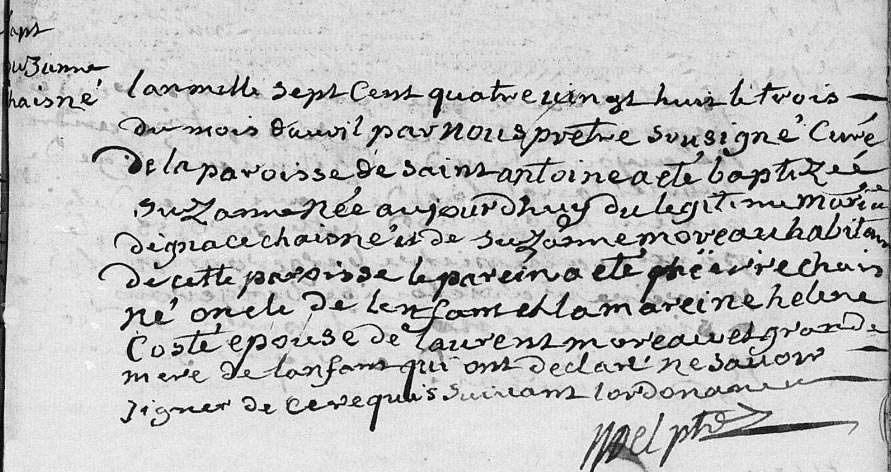 Bapt
Suzanne
chaisné
lan mille sept Cent quatre vingt huit le trois
du mois davril par nous prêtre sousigné Curé
de la paroisse de saint antoine a eté baptizeé
suzanne Née aujourdhuy du legitime mariage
dignace chaisné et de suzanne moreau habitans
de cette paroisse le parein a eté phierre chais
né oncle de lenfant et la mareine helene
Costé epouse de laurent moreau et grande
mere de lanfant qui ont déclaré ne savoir
signer de ce requis suivant lordonance
Noel ptre